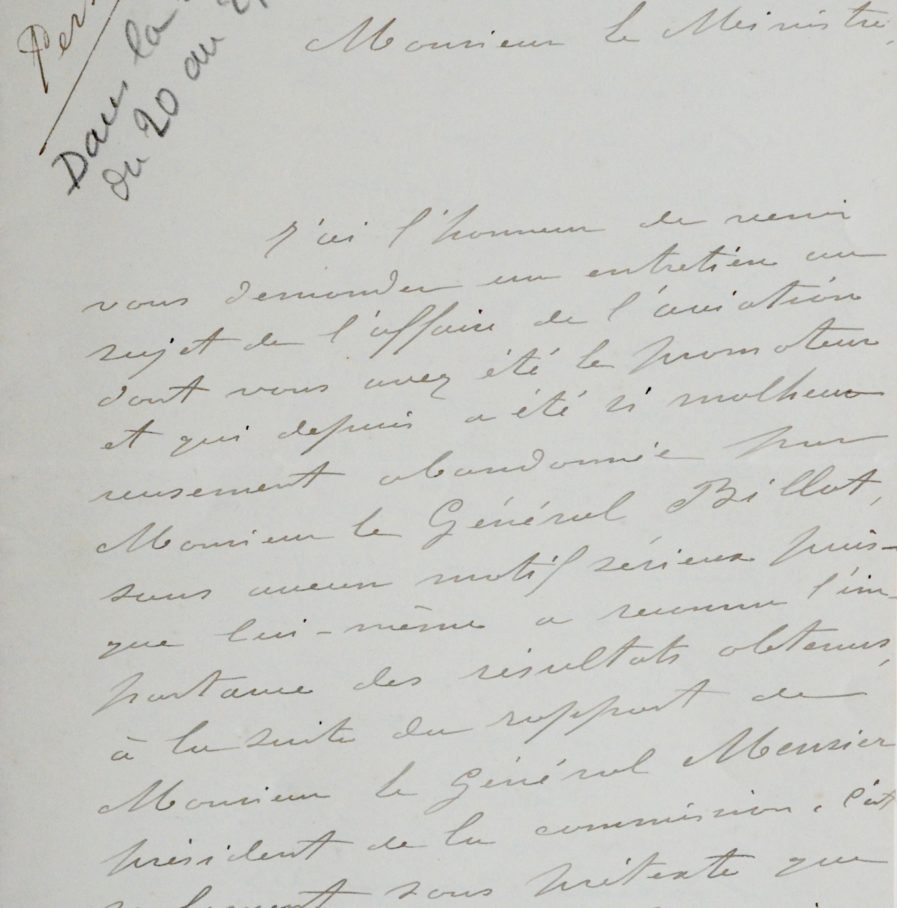 Dans la
du 20 au
Monsieur le Ministre,
J'ai l'honneur de venir
vous demander un entretien au
sujet de l'affaire de l'aviation
dont vous avez été le promoteur
et qui depuis a été si malheu
reusement abandonnée par
Monsieur le Général Billot,
sans aucun motif sérieux puis-
que lui-même a reconnu l'im-
portance des résultats obtenus,
à la suite du rapport de
Monsieur le Général Mensier
président de la commission. C'est
seulement sous prétexte que